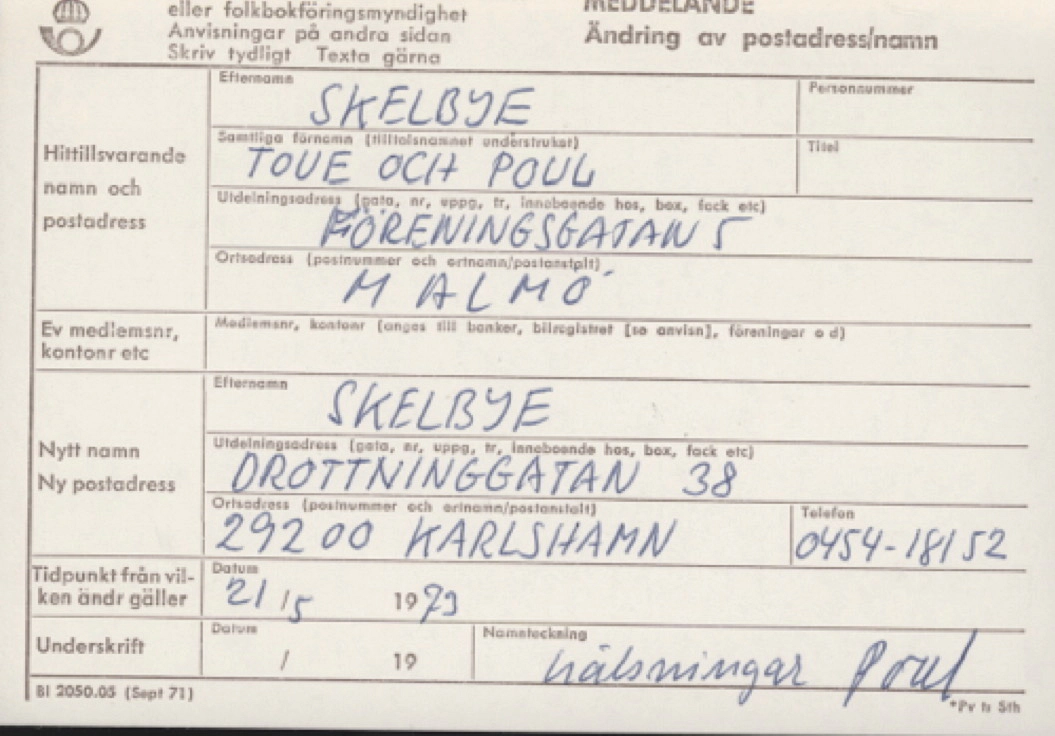 eller folkbokföringsmyndighet
MEDDELANDE
Anvisningar på andra sidan
Ändring av postadress/namn
Skriv tydligt Texta gärna
Hittillsvarande namn och postadress
Efternamn
SKELBYE
Personnummer
Samtliga förnamn (tilltalsnamnet understruket)
TOVE OCH POUL
Titel
Utdelningsadress (gata, nr, uppg, tr, inneboende hos, box, fack etc)
FÖRENINGSGATAN 5
Ortsadress (postnummer och ortnamn/postanstalt)
MALMÖ
Ev medlemsnr, kontonr etc
Medlemsnr, kontonr (anges till banker, bilregistret [se anvisn], föreningar o d)
Nytt namn
Ny postadress
Efternamn
SKELBYE
Utdelningsadress (gata, nr, uppg, tr, inneboende hos, box, fack etc)
DROTTNINGGATAN 38
Ortsadress (postnummer och ortnamn/postanstalt)
292 00 KARLSHAMN
Telefon
0454-18152
Tidpunkt från vilken ändr gäller
Datum
21/5 1973
Underskrift
Datum
/ 19
Namnteckning
hälsningar Poul
Bl 2050.05 (Sept 71)
*Pv ts Sth